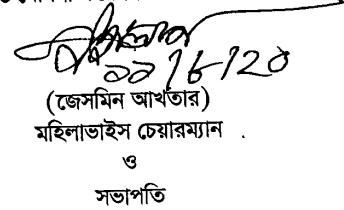 ২২/৮/২০
(জেসমিন আখতার)
মহিলাভাইস চেয়ারম্যান .
ও
সভাপতি